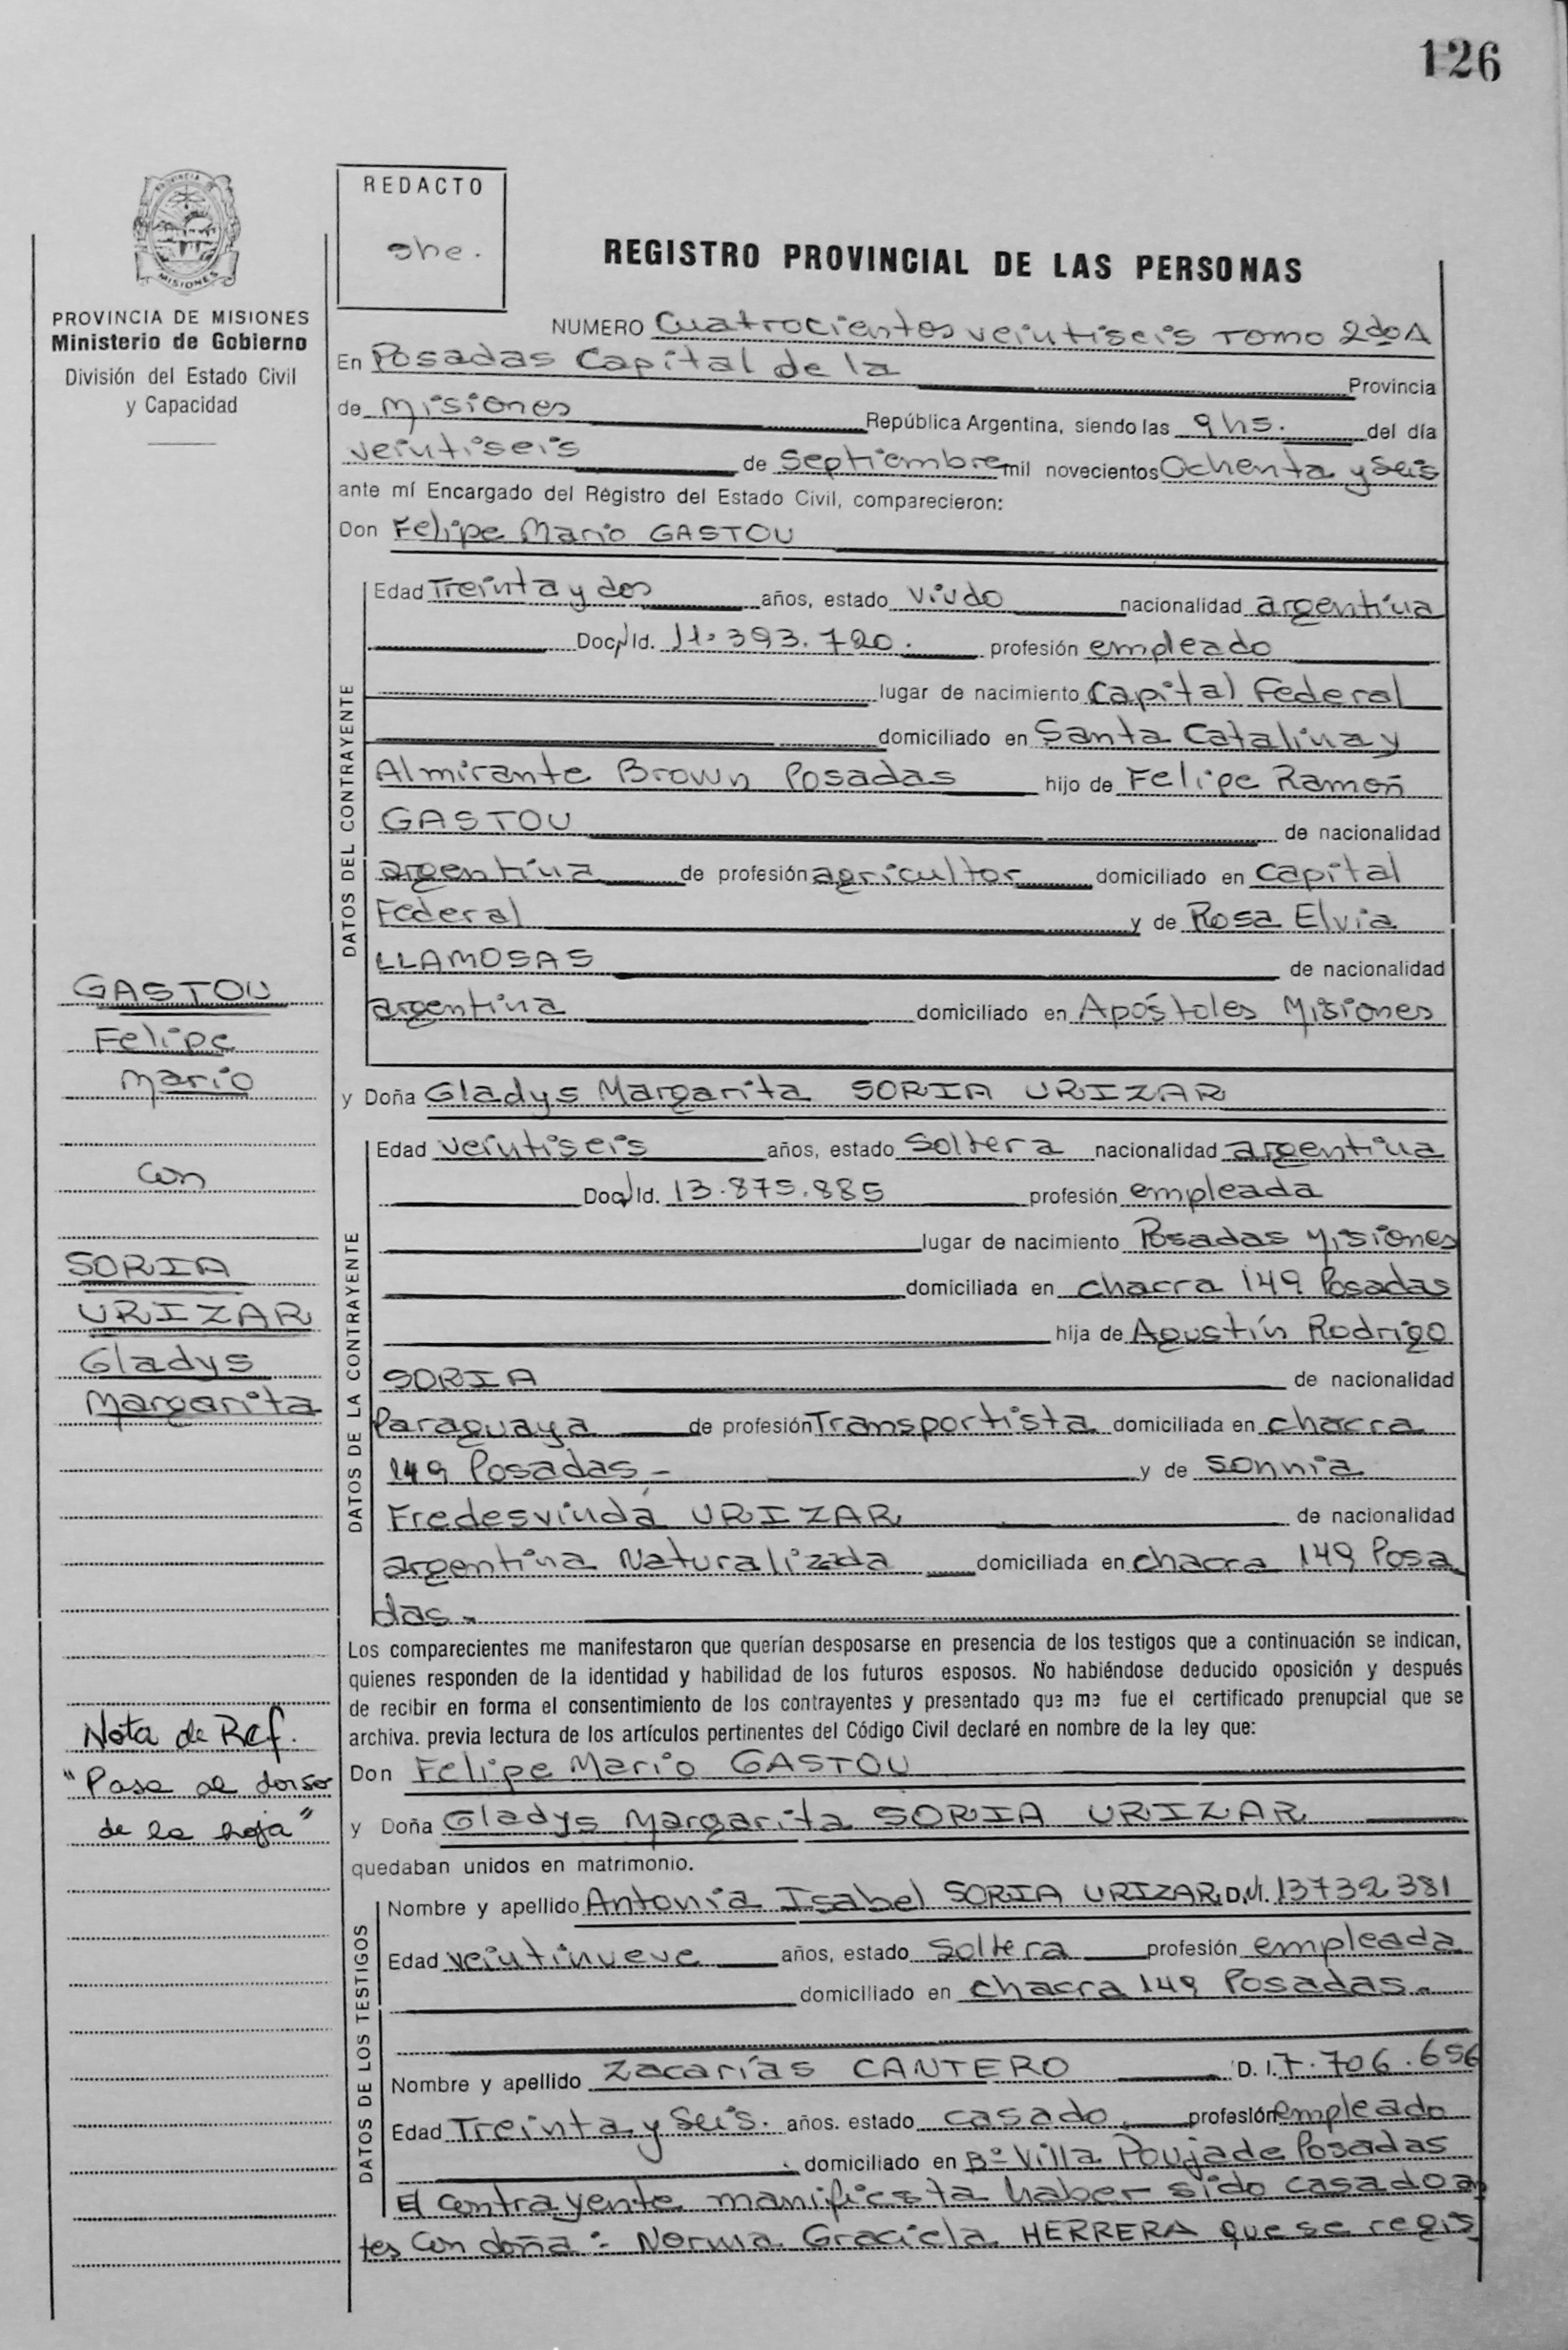 126
PROVINCIA DE
MISIONES
PROVINCIA DE MISIONES
Ministerio de Gobierno
División del Estado Civil
y Capacidad
REDACTO
she.
REGISTRO PROVINCIAL DE LAS PERSONAS
NUMERO Cuatrocientos veintiseis Tomo 2do A
En Posadas Capital de la Provincia
de Misiones República Argentina, siendo las 9 hs. del día
veintiseis de Septiembre mil novecientos Ochenta y Seis
ante mí Encargado del Registro del Estado Civil, comparecieron:
Don Felipe Mario GASTOU
DATOS DEL CONTRAYENTE
Edad Treinta y dos años, estado Viudo nacionalidad argentina
Doc. Id. 11.393.720. profesión empleado
lugar de nacimiento Capital Federal
domiciliado en Santa Catalina y
Almirante Brown Posadas hijo de Felipe Ramón
GASTOU de nacionalidad
argentina de profesión agricultor domiciliado en Capital
Federal y de Rosa Elvia
LLAMOSAS de nacionalidad
argentina domiciliado en Apóstoles Misiones
y Doña Gladys Margarita SORIA URIZAR
DATOS DE LA CONTRAYENTE
Edad veintiseis años, estado Soltera nacionalidad argentina
Doc. Id. 13.875.885 profesión empleada
lugar de nacimiento Posadas Misiones
domiciliada en chacra 149 Posadas
hija de Agustín Rodrigo
SORIA de nacionalidad
Paraguaya de profesión Transportista domiciliada en chacra
149 Posadas.- y de Sonnia
Fredesvinda URIZAR de nacionalidad
argentina Naturalizada domiciliada en chacra 149 Posa
das.-
GASTOU
Felipe
Mario
con
SORIA
URIZAR
Gladys
Margarita
Los comparecientes me manifestaron que querían desposarse en presencia de los testigos que a continuación se indican,
quienes responden de la identidad y habilidad de los futuros esposos. No habiéndose deducido oposición y después
de recibir en forma el consentimiento de los contrayentes y presentado que me fue el certificado prenupcial que se
archiva. previa lectura de los artículos pertinentes del Código Civil declaré en nombre de la ley que:
Don Felipe Mario GASTOU
y Doña Gladys Margarita SORIA URIZAR
quedaban unidos en matrimonio.
Nota de Ref.
"Pasa al dorso
de la hoja"
DATOS DE LOS TESTIGOS
Nombre y apellido Antonia Isabel SORIA URIZAR D.NI. 13732381
Edad veintinueve años, estado Soltera profesión empleada
domiciliado en chacra 149 Posadas.-
Nombre y apellido Zacarías CANTERO D. I. 7.706.656
Edad Treinta y Seis. años. estado casado profesión empleado
domiciliado en Bº Villa Poujade Posadas
El contrayente manifiesta haber sido casado an
tes con doña: Norma Graciela HERRERA que se regis